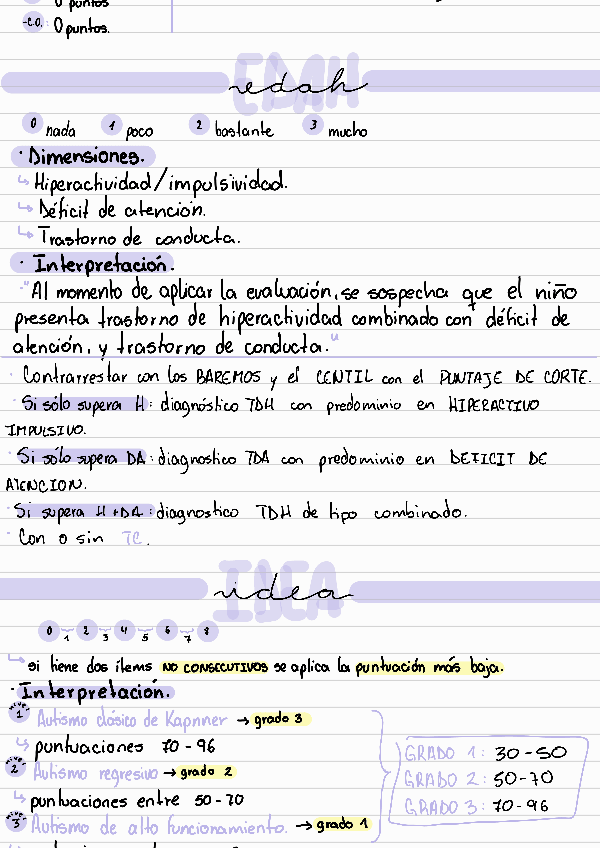 0 puntos
-C.O. : 0 puntos.
EDAH
edah
0 nada 1 poco 2 bastante 3 mucho
· Dimensiones.
↳ Hiperactividad/impulsividad.
↳ Déficit de atención.
↳ Trastorno de conducta.
· Interpretación.
·"Al momento de aplicar la evaluación, se sospecha que el niño
presenta trastorno de hiperactividad combinado con déficit de
atención, y trastorno de conducta."
· Contrarrestar con los BAREMOS y el CENTIL con el PUNTAJE DE CORTE.
· Si sólo supera H: diagnóstico TDH con predominio en HIPERACTIVO
IMPULSIVO.
· Si sólo supera DA: diagnostico TDA con predominio en DEFICIT DE
ATENCION.
· Si supera H+DA: diagnostico TDH de tipo combinado.
· Con o sin TC.
IDEA
idea
0 1 2 3 4 5 6 7 8
↳ si tiene dos ítems NO CONSECUTIVOS se aplica la puntuación más baja.
· Interpretación.
1 Autismo clásico de Kapnner → grado 3
↳ puntuaciones 70-96
2 Autismo regresivo → grado 2
↳ puntuaciones entre 50-70
3 Autismo de alto funcionamiento. → grado 1
GRADO 1: 30-50
GRADO 2: 50-70
GRADO 3: 70-96